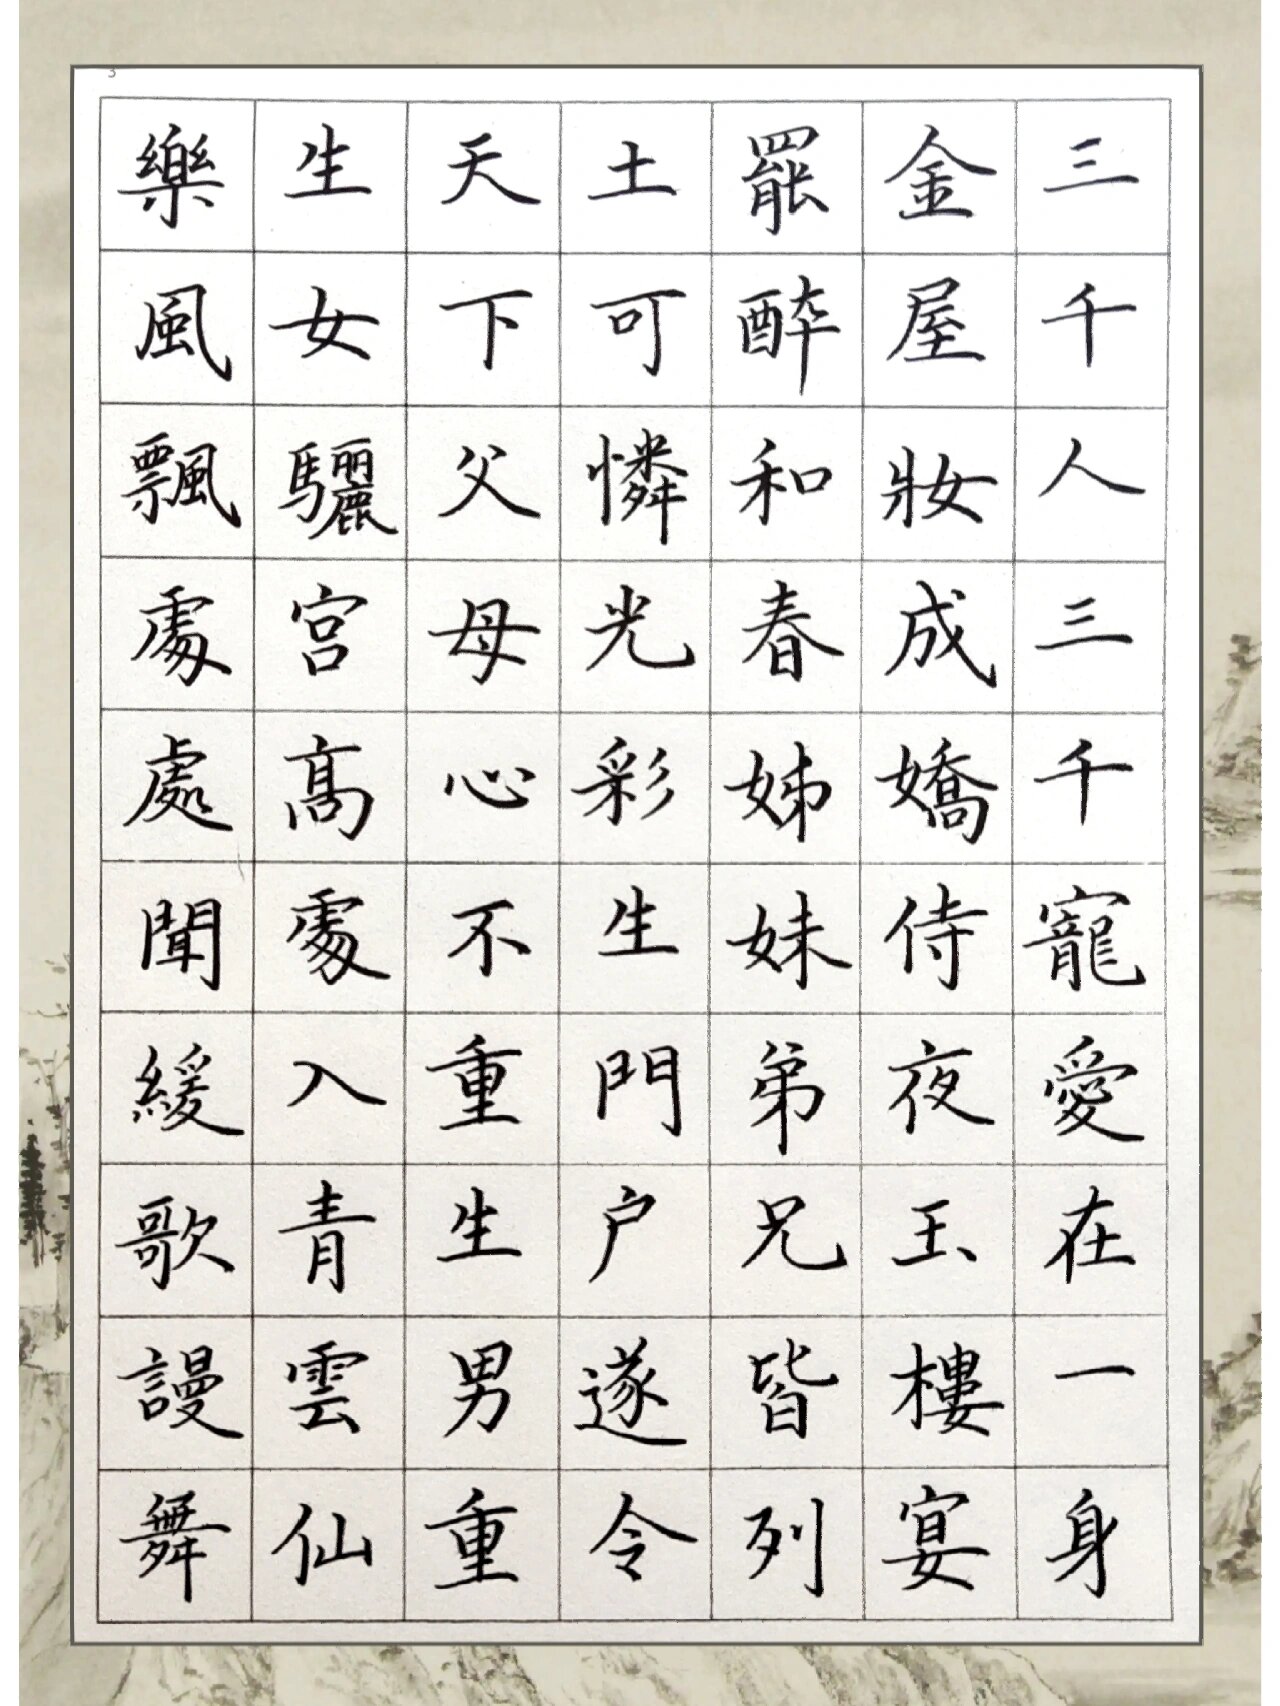 3
三千人三千寵愛在一身
金屋妝成嬌侍夜玉樓宴
罷醉和春姊妹弟兄皆列
土可憐光彩生門户遂令
天下父母心不重生男重
生女驪宮高處入青雲仙
樂風飄處處聞緩歌謾舞